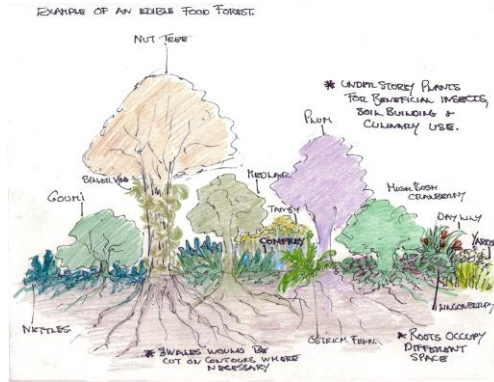 EXAMPLE OF AN EDIBLE FOOD FOREST.
NUT TREE
* UNDER STOREY PLANTS
FOR BENEFICIAL INSECTS,
SOIL BUILDING &
CULINARY USE.
PLUM
MEDLAR
HIGH BUSH
CRANBERRY
GOUMI
TANSY
DAY LILY
COMFREY
NETTLES
LINGONBERRY
OSTRICH FERN
* SWALES WOULD BE
CUT ON CONTOURS, WHERE
NECESSARY
* ROOTS OCCUPY
DIFFERENT
SPACE